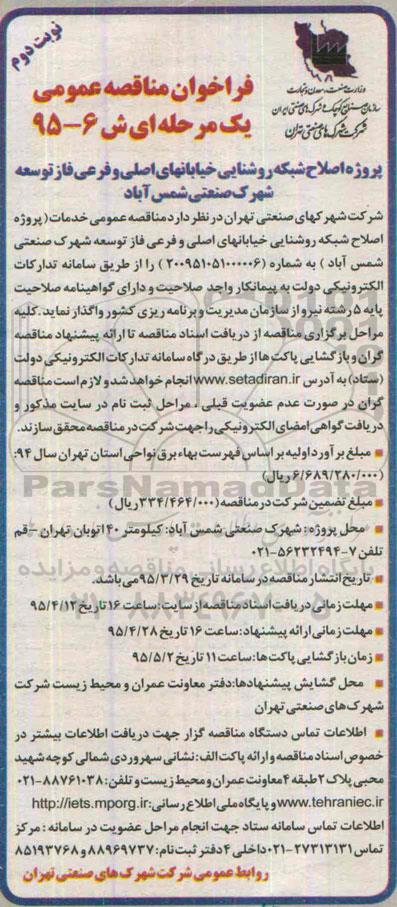 نوبت دوم
وزارت صنعت، معدن و تجارت
سازمان صنایع کوچک و شهرک‌های صنعتی ایران
شرکت شهرک‌های صنعتی تهران
فراخوان مناقصه عمومی
یک مرحله ای ش ۶-۹۵
پروژه اصلاح شبکه روشنایی خیابانهای اصلی و فرعی فاز توسعه
شهرک صنعتی شمس آباد
شرکت شهرکهای صنعتی تهران در نظر دارد مناقصه عمومی خدمات (پروژه
اصلاح شبکه روشنایی خیابانهای اصلی و فرعی فاز توسعه شهرک صنعتی
شمس آباد ) به شماره (۲۰۰۹۵۱۰۵۱۰۰۰۰۰۶) را از طریق سامانه تدارکات
الکترونیکی دولت به پیمانکار واجد صلاحیت و دارای گواهینامه صلاحیت
پایه ۵ رشته نیرو از سازمان مدیریت و برنامه ریزی کشور واگذار نماید.کلیه
مراحل برگزاری مناقصه از دریافت اسناد مناقصه تا ارائه پیشنهاد مناقصه
گران و بازگشایی پاکت ها از طریق درگاه سامانه تدارکات الکترونیکی دولت
(ستاد) به آدرس www.setadiran.ir انجام خواهد شد و لازم است مناقصه
گران در صورت عدم عضویت قبلی ، مراحل ثبت نام در سایت مذکور و
دریافت گواهی امضای الکترونیکی را جهت شرکت در مناقصه محقق سازند.
مبلغ برآورد اولیه بر اساس فهرست بهاء برق نواحی استان تهران سال ۹۴:
(۶/۶۸۹/۲۸۰/۰۰۰ ریال)
مبلغ تضمین شرکت در مناقصه (۳۳۴/۴۶۴/۰۰۰ ریال )
محل پروژه : شهرک صنعتی شمس آباد: کیلومتر ۴۰ اتوبان تهران – قم
تلفن ۷-۵۶۲۳۲۴۹۴-۰۲۱
تاریخ انتشار مناقصه در سامانه تاریخ ۹۵/۳/۲۹ می باشد.
مهلت زمانی دریافت اسناد مناقصه از سایت: ساعت ۱۶ تاریخ ۹۵/۴/۱۲
مهلت زمانی ارائه پیشنهاد: ساعت ۱۶ تاریخ ۹۵/۴/۲۸
زمان بازگشایی پاکت ها: ساعت ۱۱ تاریخ ۹۵/۵/۲
محل گشایش پیشنهادها: دفتر معاونت عمران و محیط زیست شرکت
شهرک های صنعتی تهران
اطلاعات تماس دستگاه مناقصه گزار جهت دریافت اطلاعات بیشتر در
خصوص اسناد مناقصه و ارائه پاکت الف: نشانی سهروردی شمالی کوچه شهید
محبی پلاک ۲ طبقه ۴ معاونت عمران و محیط زیست و تلفن: ۸۸۷۶۱۰۳۸-۰۲۱
www.tehraniec.ir و پایگاه ملی اطلاع رسانی: http://iets.mporg.ir
اطلاعات تماس سامانه ستاد جهت انجام مراحل عضویت در سامانه : مرکز
تماس ۲۷۳۱۳۱۳۱-۰۲۱ داخلی ۴ دفتر ثبت نام: ۸۸۹۶۹۷۳۷ و ۸۵۱۹۳۷۶۸
روابط عمومی شرکت شهرک های صنعتی تهران
ParsNamadData
پایگاه اطلاع رسانی مناقصه و مزایده